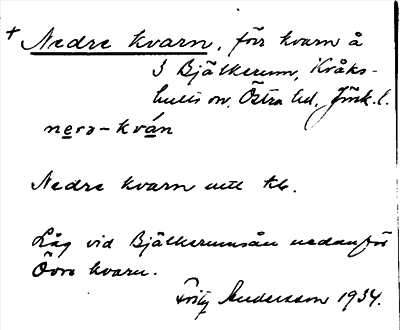 + Nedre kvarn, förr kvarn å
3 Bjälkerum, Kråks-
hults sn, Östra hd, Jönk. l.
nerə-kván
Nedre kvarn
Låg vid Bjälkerumsån nedanför
Övre kvarn.
Fritz Andersson 1934.